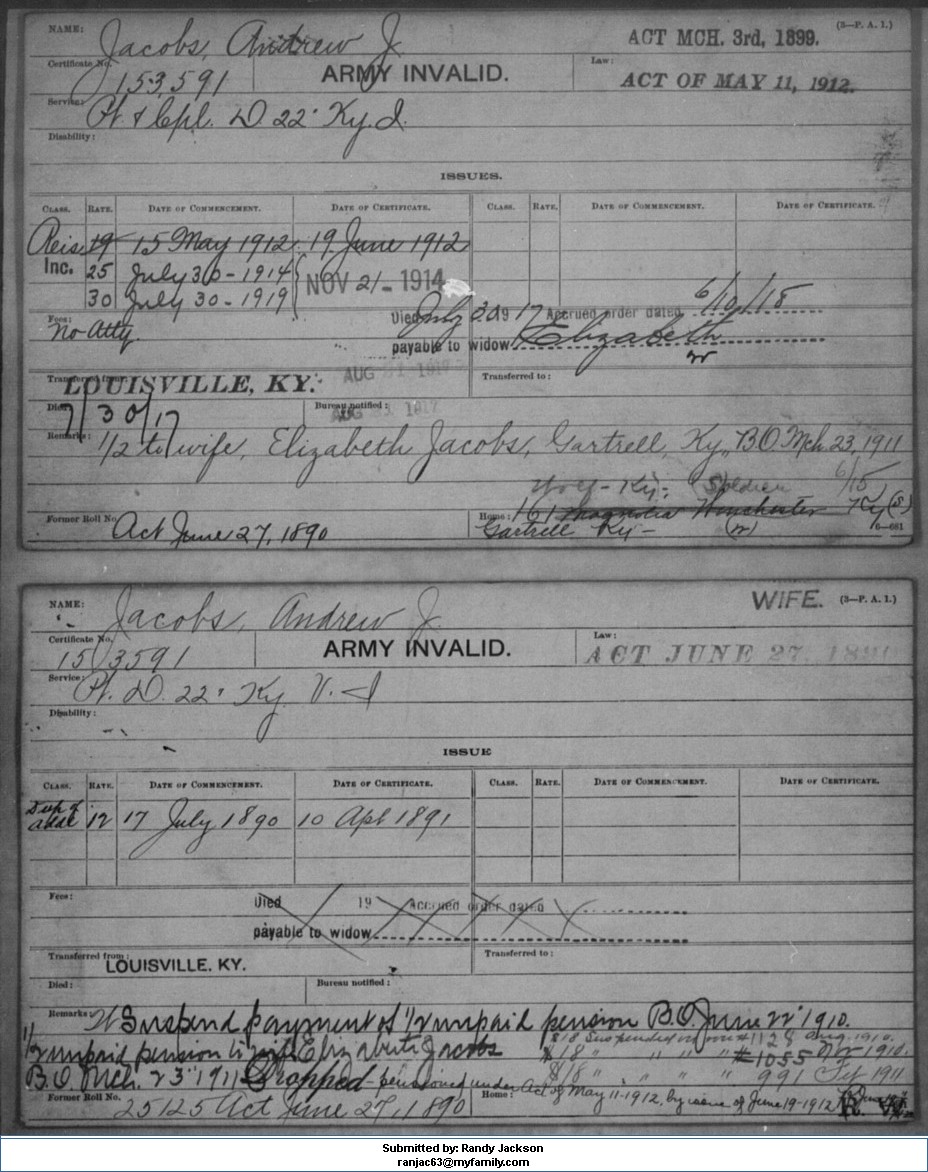 NAME: Jacobs, Andrew J. ACT MCH. 3rd, 1899. (3—P. A. I.)
Certificate No. 153,591 ARMY INVALID. Law: ACT OF MAY 11, 1912.
Service: Pt. & Cpl. D 22" Ky. I.
Disability:
ISSUES.
CLASS. RATE. DATE OF COMMENCEMENT. DATE OF CERTIFICATE. CLASS. RATE. DATE OF COMMENCEMENT. DATE OF CERTIFICATE.
Reis. 19 15 May 1912 19 June 1912
Inc. 25 July 30-1914 NOV 21-1914
30 July 30-1919
Fees: No Atty. Died July 30 1917 Accrued order dated 6/10/18
payable to widow Elizabeth
Transferred from: LOUISVILLE, KY. Transferred to:
Died: 7/30/17 Bureau notified:
Remarks: 1/2 to wife, Elizabeth Jacobs, Gartrell, Ky., B.O. Mch. 23, 1911
Wolf - Ky. (Soldier 6/15)
Home: 161 Magnolia Winchester Ky (S)
Former Roll No. Act June 27, 1890 Gartrell Ky - (W) 6—681
NAME: Jacobs, Andrew J. WIFE. (3—P. A. I.)
Certificate No. 153591 ARMY INVALID. Law: ACT JUNE 27, 1890
Service: Pt. D. 22" Ky. V. I
Disability:
ISSUE
CLASS. RATE. DATE OF COMMENCEMENT. DATE OF CERTIFICATE. CLASS. RATE. DATE OF COMMENCEMENT. DATE OF CERTIFICATE.
12 17 July 1890 10 Apl 1891
Fees: Died 19 Accrued order dated
payable to widow
Transferred from: LOUISVILLE, KY. Transferred to:
Died: Bureau notified:
Remarks: Suspend payment of 1/2 unpaid pension B.O. June 22" 1910.
1/2 unpaid pension to wife Elizabeth Jacobs $18 Suspended #1128 Aug. 1910.
$18 " " " #1055 1910.
B.O. Mch. 23" 1911 Dropped - pensioned under Act of May 11-1912, by issue of June 19-1912 $18 " " " 991 1911
Former Roll No. 25125 Act June 27, 1890 Home:
Submitted by: Randy Jackson
ranjac63@myfamily.com